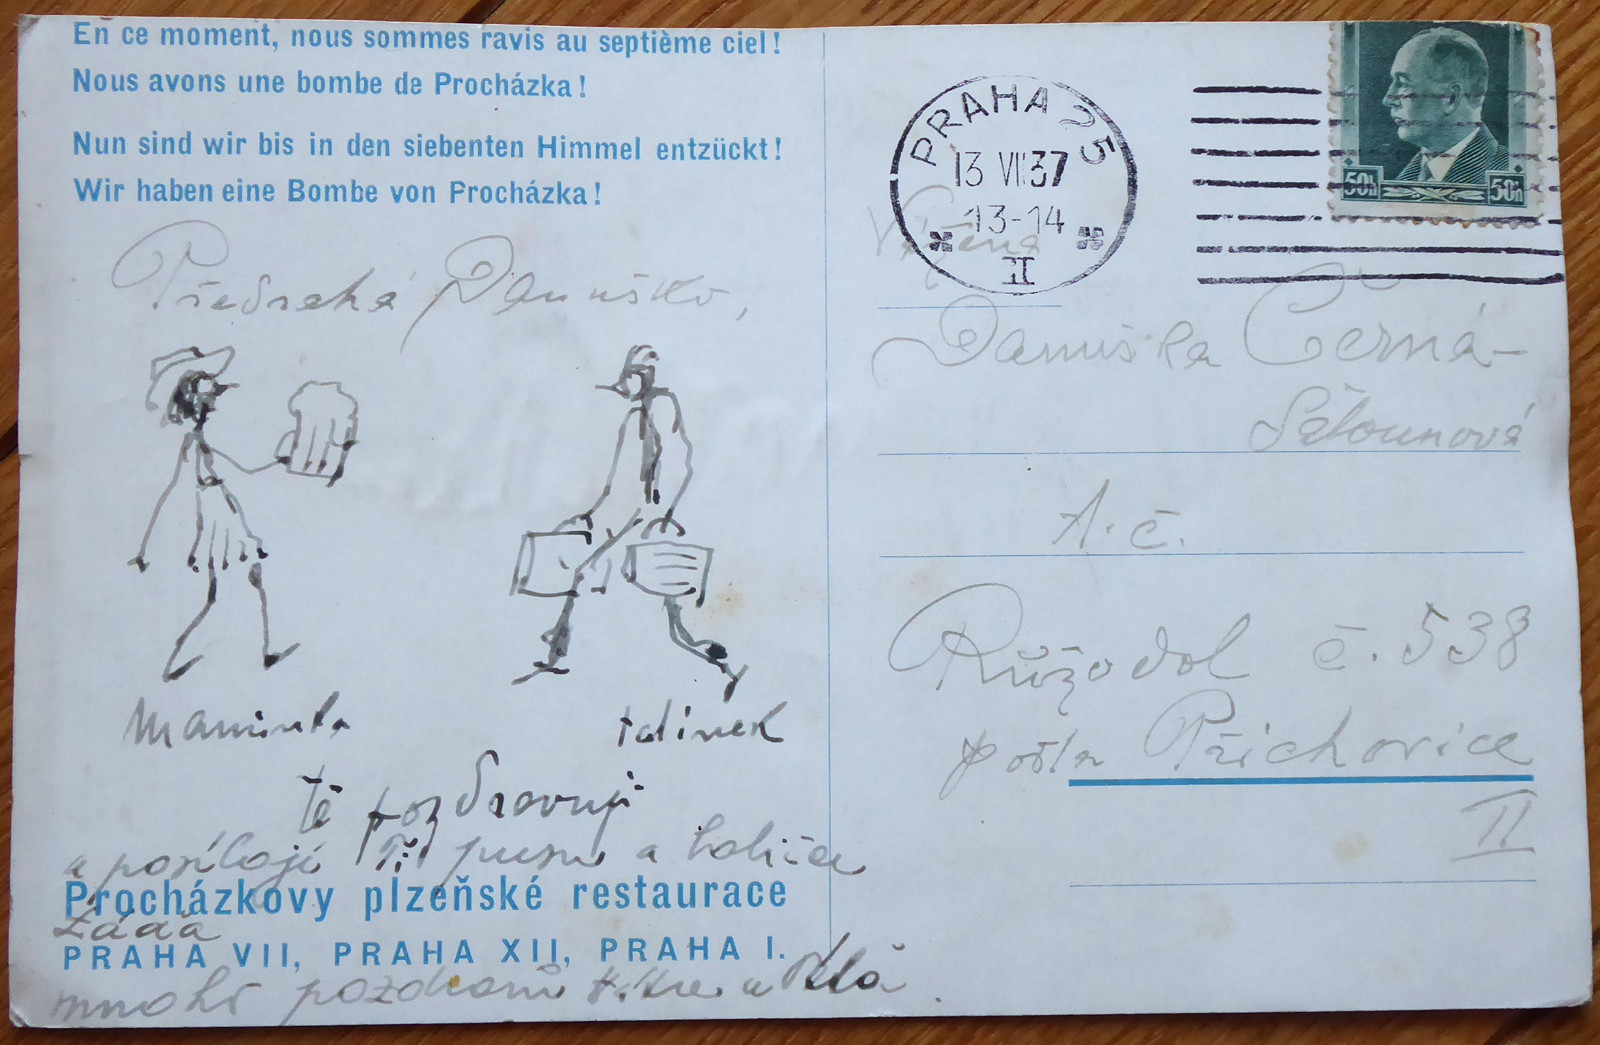 En ce moment, nous sommes ravis au septième ciel!
Nous avons une bombe de Procházka!
Nun sind wir bis in den siebenten Himmel entzückt!
Wir haben eine Bombe von Procházka!
Předrahá Danuško,
Maminka
tatínek
tě pozdravují
a posílají Ti pusu a
Procházkovy plzeňské restaurace
PRAHA VII, PRAHA XII, PRAHA I.
mnoho pozdravů
PRAHA 25
13 VII 37
13-14
II
50h 50h
Vážená
Danuška Černá-
Šátounová
A. č.
Růžodol č. 538
pošta Příchovice
II